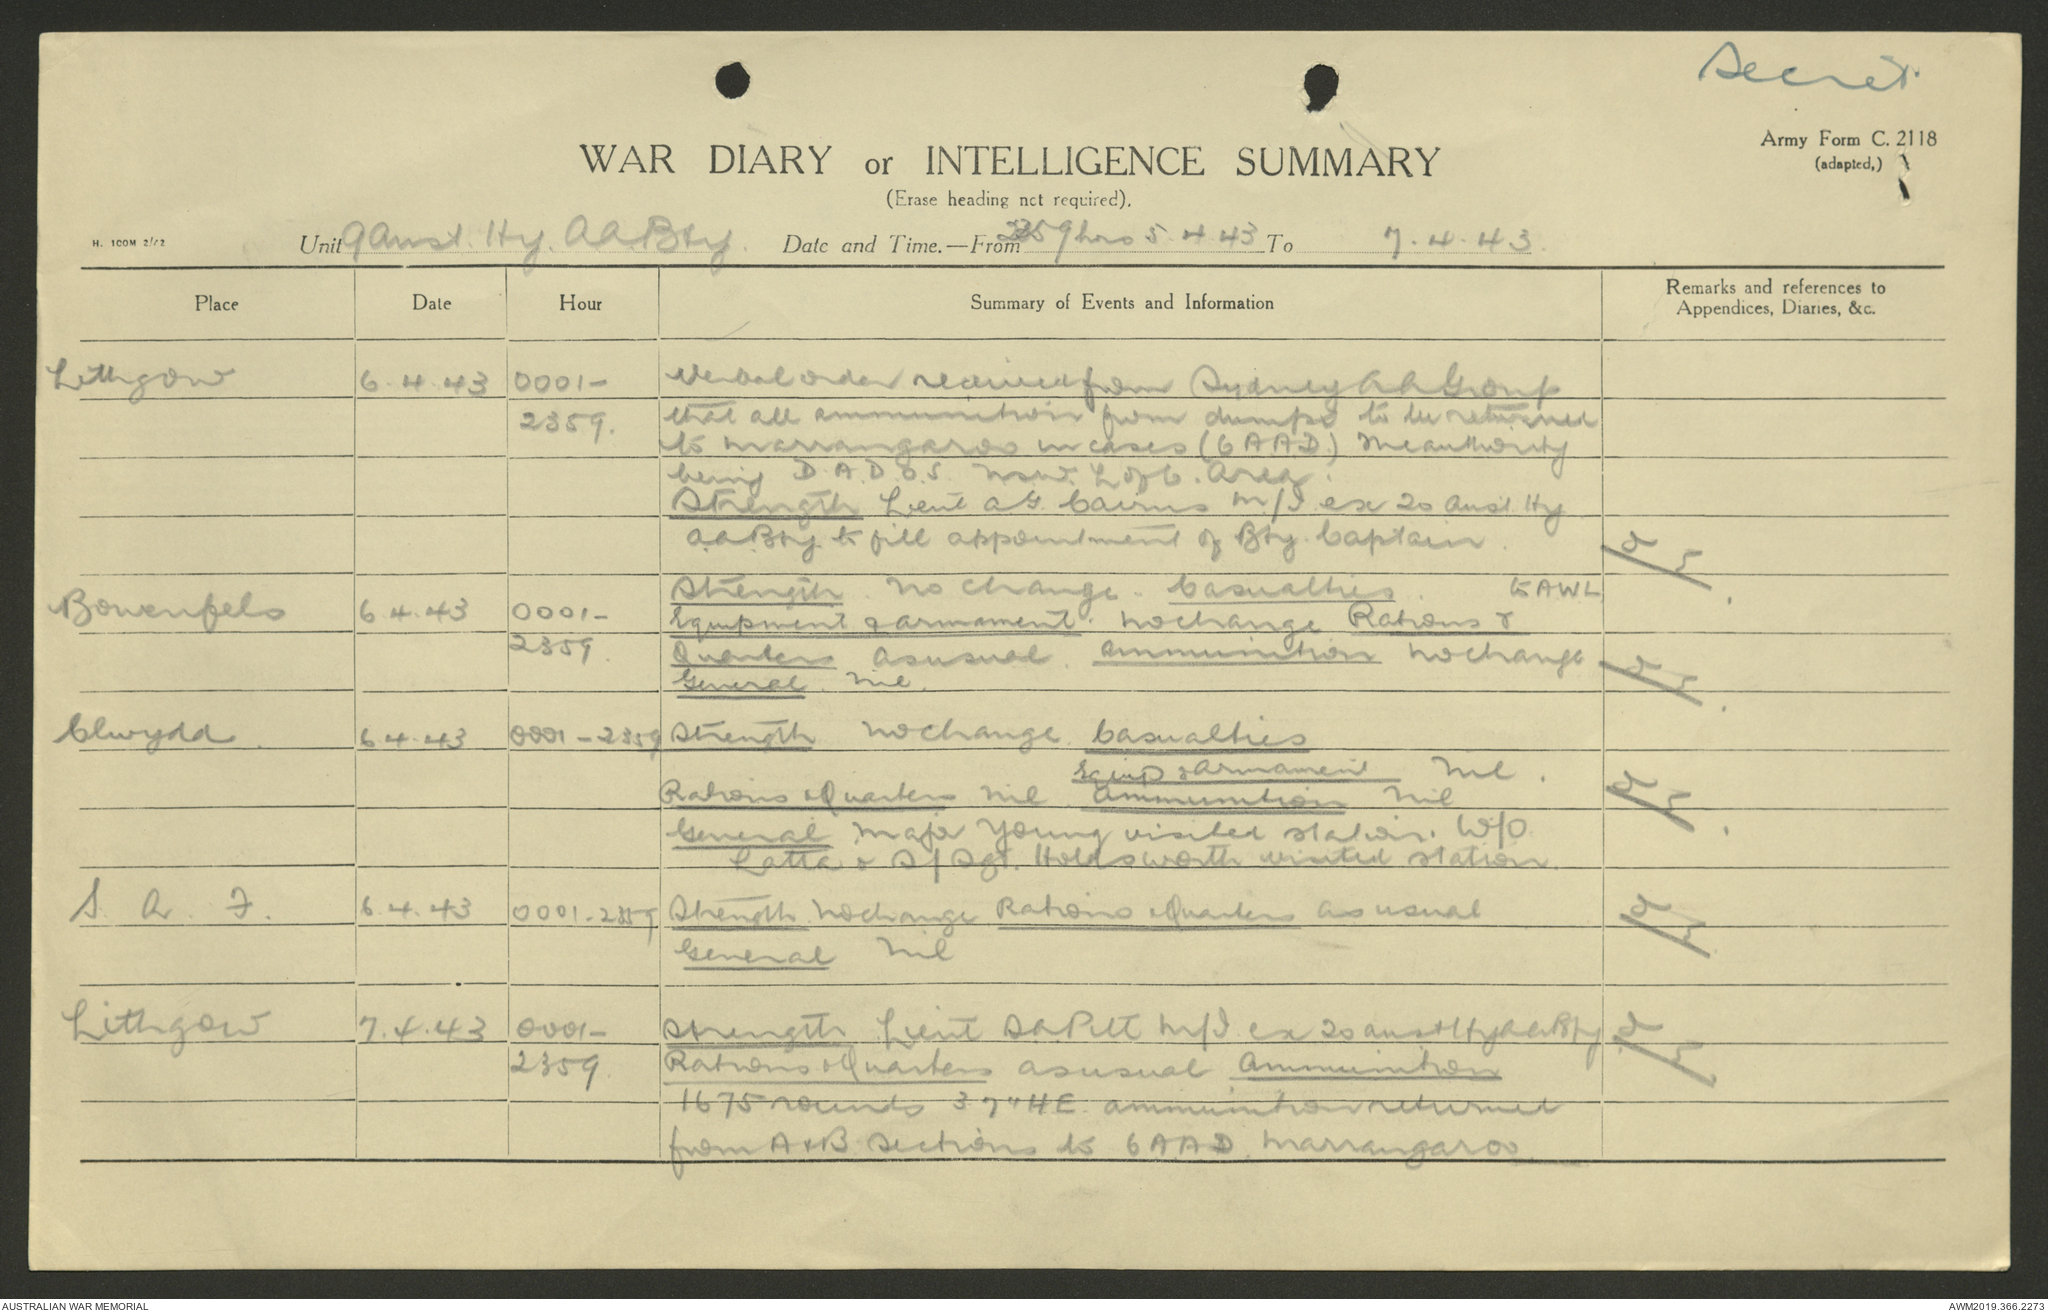 Secret
Army Form C. 2118
(adapted,)
WAR DIARY or INTELLIGENCE SUMMARY
(Erase heading not required).
H. 100M 2/42
Unit 9 Aust. Hy. A.A. Bty. Date and Time.—From 2359 hrs 5.4.43 To 7.4.43.
Place Date Hour Summary of Events and Information Remarks and references to Appendices, Diaries, &c.
Lithgow 6.4.43 0001- Verbal order received from Sydney AA Group
2359. that all ammunition from dumps to be returned
to Marrangaroo in cases (6 AAD) the authority
being D.A.D.O.S. NSW. L of C. Area.
Strength Lieut A G Cairns M/I ex 20 Aust Hy
AA Bty to fill appointment of Bty Captain.
Bowenfels 6.4.43 0001- Strength. No change. Casualties. to AWL
Equipment & armament. No change Rations &
2359. Quarters as usual. Ammunition No change
General. Nil.
Clwydd. 6.4.43 0001-2359 Strength No change. Casualties
Equip & Armament Nil.
Rations & Quarters Nil. Ammunition Nil
General Major Young visited station. W/O
Latta & S/Sgt. Holdsworth visited station.
S. A. F. 6.4.43 0001-2359 Strength No change Rations & Quarters as usual
General Nil
Lithgow 7.4.43 0001- Strength Lieut S A Pitt M/I ex 20 Aust Hy AA Bty
2359. Rations & Quarters as usual Ammunition
1675 rounds 3.7" H.E. ammunition returned
from A & B Sections to 6 AAD Marrangaroo
AUSTRALIAN WAR MEMORIAL
AWM2019.366.2273